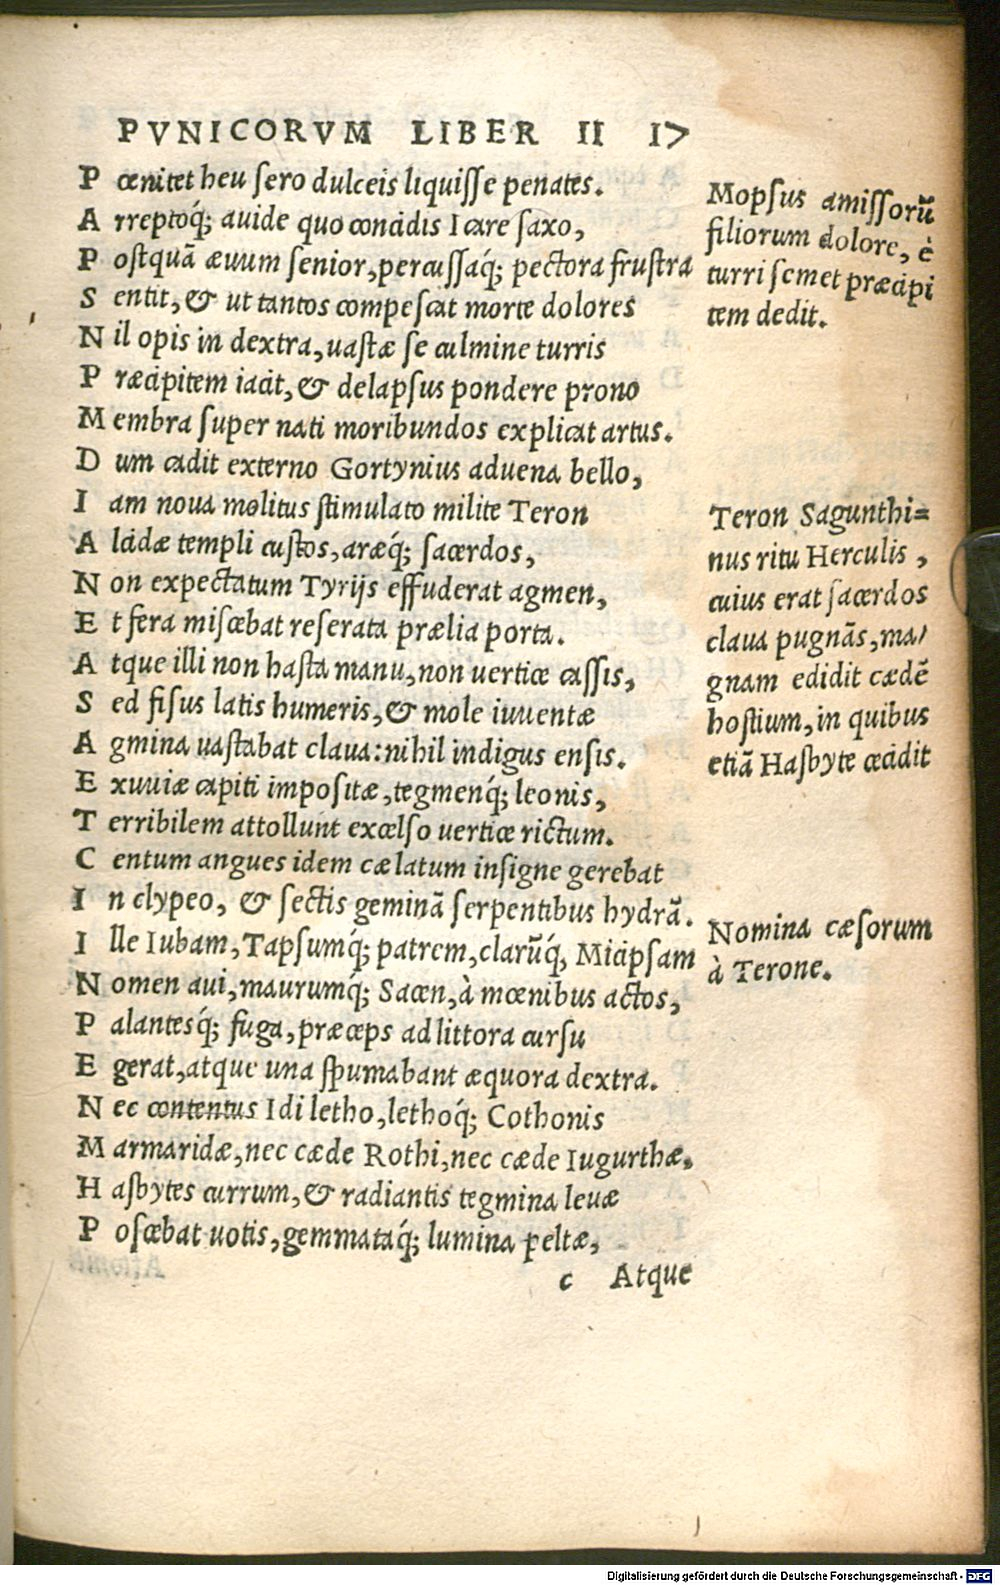 PVNICORVM LIBER II 17
P œnitet heu ſero dulceis liquiſſe penates.
A rreptoq́; auide quo concidis Icare ſaxo,
P oſtquã æuum ſenior, percuſſaq́; pectora fruſtra
S entit, & ut tantos compeſcat morte dolores
N il opis in dextra, uaſtæ ſe culmine turris
P ræcipitem iacit, & delapſus pondere prono
M embra ſuper nati moribundos explicat artus.
D um cadit externo Gortynius aduena bello,
I am noua molitus ſtimulato milite Teron
A lcidæ templi cuſtos, aræq́; ſacerdos,
N on expectatum Tyrijs effuderat agmen,
E t fera miſcebat reſerata prælia porta.
A tque illi non haſta manu, non uertice caſſis,
S ed fiſus latis humeris, & mole iuuentæ
A gmina uaſtabat claua: nihil indigus enſis.
E xuuiæ capiti impoſitæ, tegmenq́; leonis,
T erribilem attollunt excelſo uertice rictum.
C entum angues idem cælatum inſigne gerebat
I n clypeo, & ſectis geminã ſerpentibus hydrã.
I lle Iubam, Tapſumq́; patrem, clarũq́, Micipſam
N omen aui, maurumq́; Sacen, à mœnibus actos,
P alantesq́; fuga, præceps ad littora curſu
E gerat, atque una ſpumabant æquora dextra.
N ec contentus Idi letho, lethoq́; Cothonis
M armaridæ, nec cæde Rothi, nec cæde Iugurthæ,
H aſbytes currum, & radiantis tegmina leuæ
P oſcebat uotis, gemmataq́; lumina peltæ,
c Atque
Mopſus amiſſorũ
filiorum dolore, è
turri ſemet præcipi
tem dedit.
Teron Sagunthi=
nus ritu Herculis,
cuius erat ſacerdos
claua pugnãs, ma/
gnam edidit cædẽ
hoſtium, in quibus
etiã Haſbyte cecidit
Nomina cæſorum
à Terone.
Digitalisierung gefördert durch die Deutsche Forschungsgemeinschaft - DFG